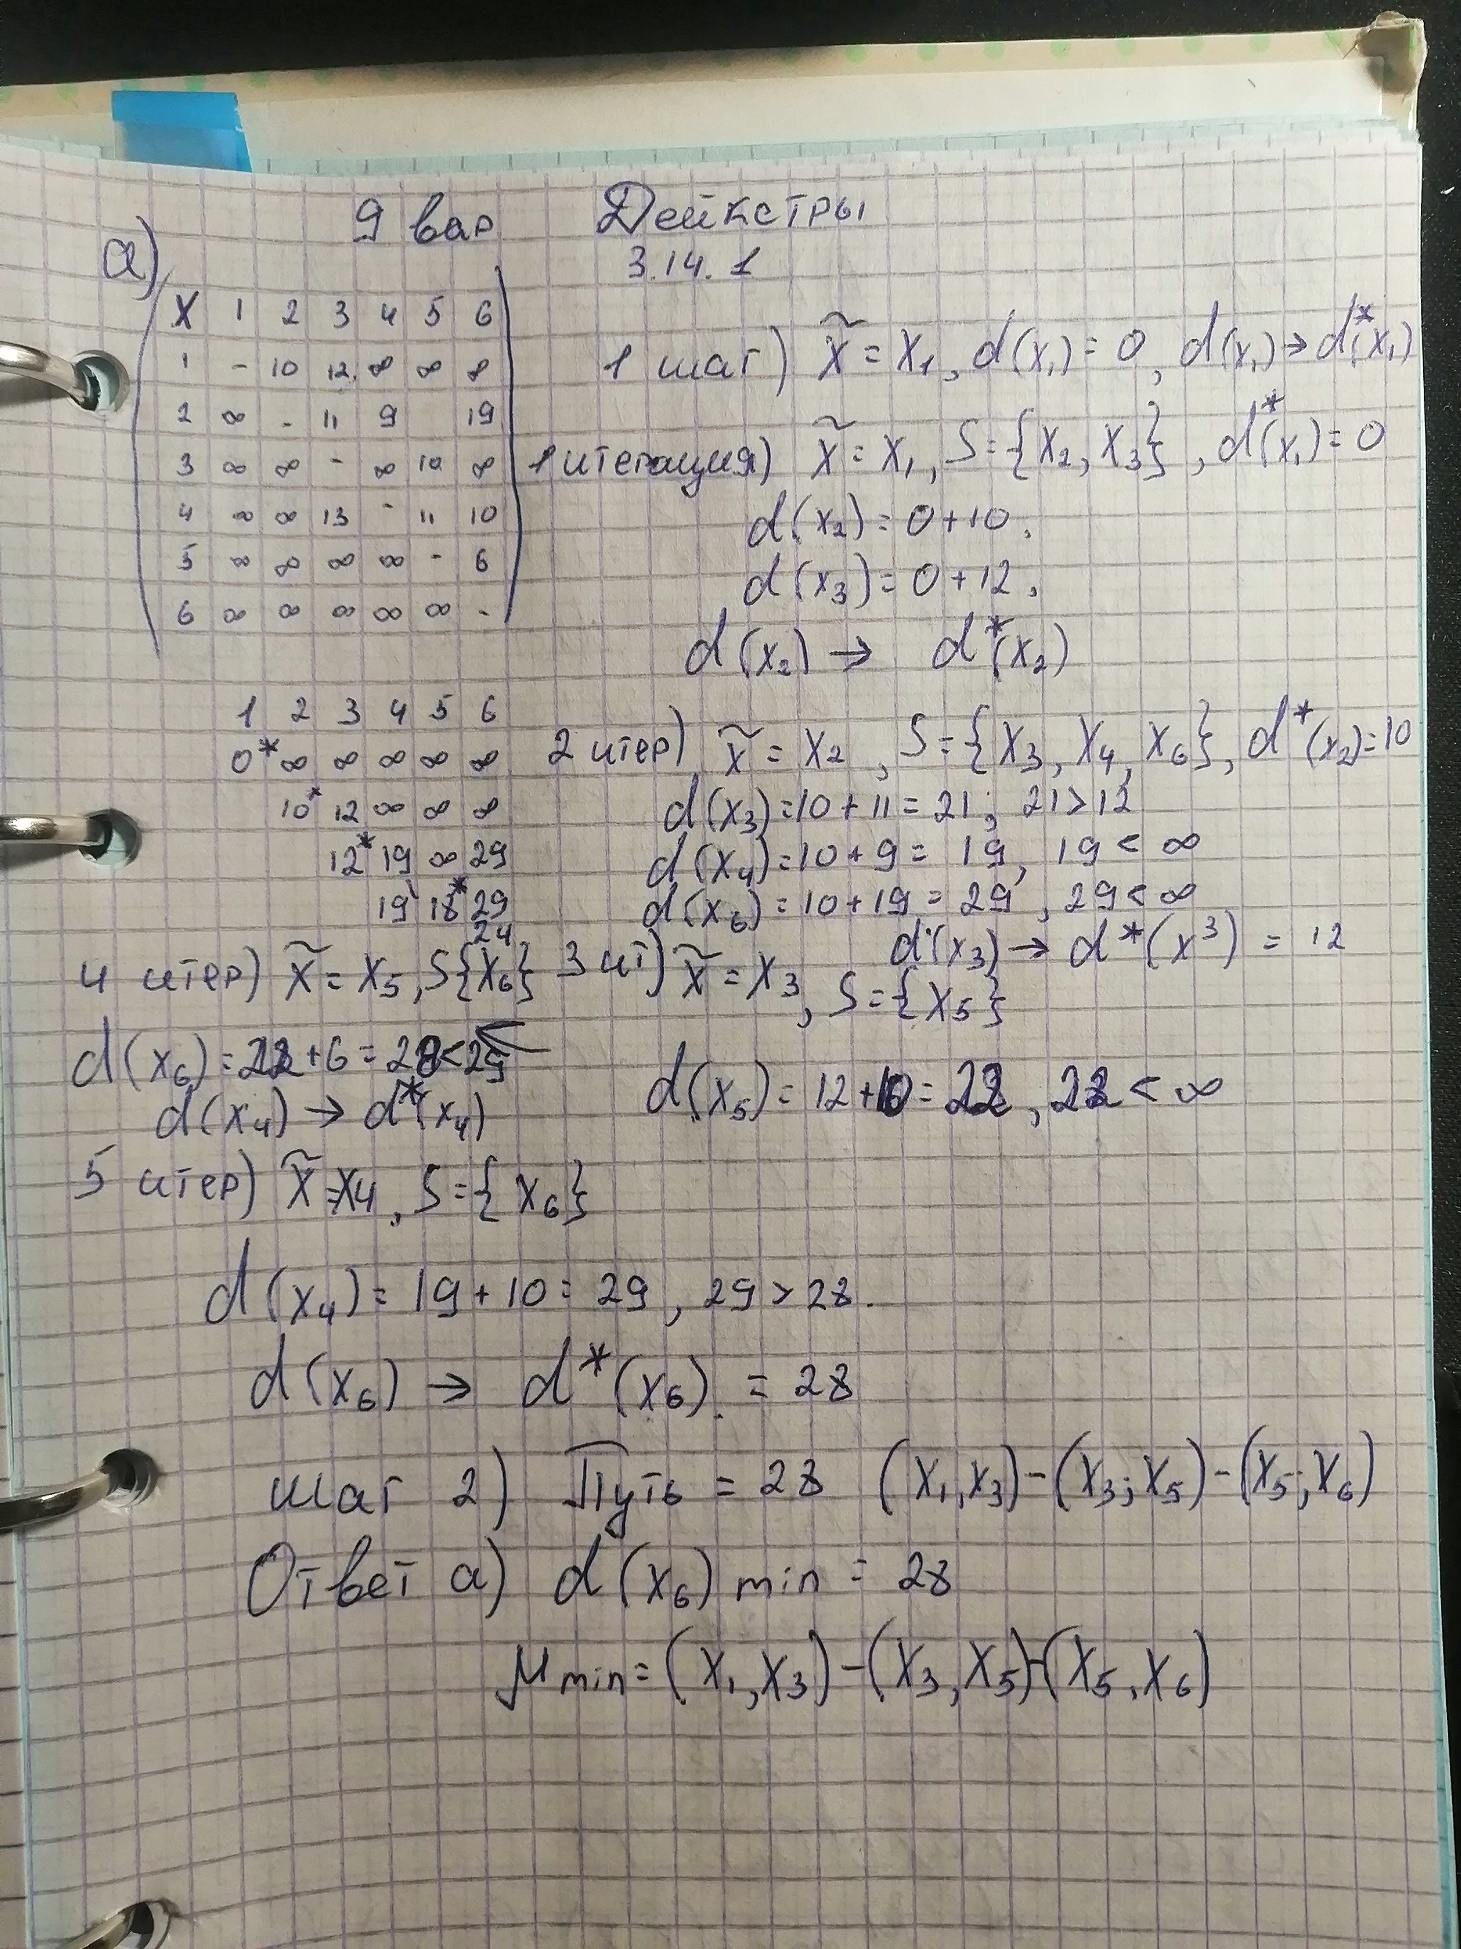 9 вар Дейкстры
а) 3.14.1
X 1 2 3 4 5 6
1 - 10 12 ∞ ∞ ∞
2 ∞ - 11 9 19
3 ∞ ∞ - ∞ 10 ∞
4 ∞ ∞ 13 - 11 10
5 ∞ ∞ ∞ ∞ - 6
6 ∞ ∞ ∞ ∞ ∞ -
1 шаг) x̃ = x₁, d(x₁) = 0, d(x₁) → d*(x₁)
1 итерация) x̃ = x₁, S = {x₂, x₃}, d*(x₁) = 0
d(x₂) = 0 + 10,
d(x₃) = 0 + 12,
d(x₂) → d*(x₂)
1 2 3 4 5 6
0* ∞ ∞ ∞ ∞ ∞
10* 12 ∞ ∞ ∞
12* 19 ∞ 29
19 18* 29
24
2 итер) x̃ = x₂, S = {x₃, x₄, x₆}, d*(x₂) = 10
d(x₃) = 10 + 11 = 21; 21 > 12
d(x₄) = 10 + 9 = 19, 19 < ∞
d(x₆) = 10 + 19 = 29, 29 < ∞
d(x₃) → d*(x³) = 12
3 ит) x̃ = x₃, S = {x₅}
d(x₅) = 12 + 10 = 22, 22 < ∞
4 итер) x̃ = x₅, S{x₆}
d(x₆) = 22 + 6 = 28 < 29
d(x₄) → d*(x₄)
5 итер) x̃ = x₄, S = {x₆}
d(x₄) = 19 + 10 = 29, 29 > 28.
d(x₆) → d*(x₆) = 28
шаг 2) Путь = 28 (x₁, x₃) - (x₃; x₅) - (x₅; x₆)
Ответ а) d(x₆) min = 28
μ min = (x₁, x₃) - (x₃, x₅) - (x₅, x₆)